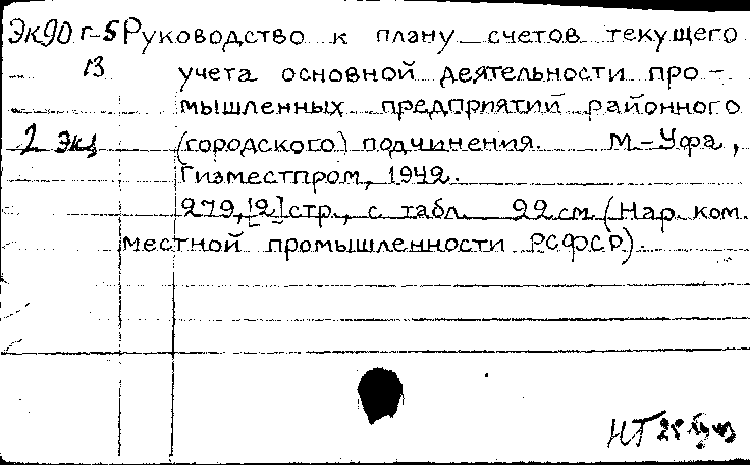 Эк90 г-5 Руководство к плану счетов текущего
13 учета основной деятельности про-
мышленных предприятий районного
2 экц (городского) подчинения. М-Уфа,
Гизместпром, 1942.
279,[2] стр., с табл. 22 см (Нар. ком.
местной промышленности РСФСР).
НТ